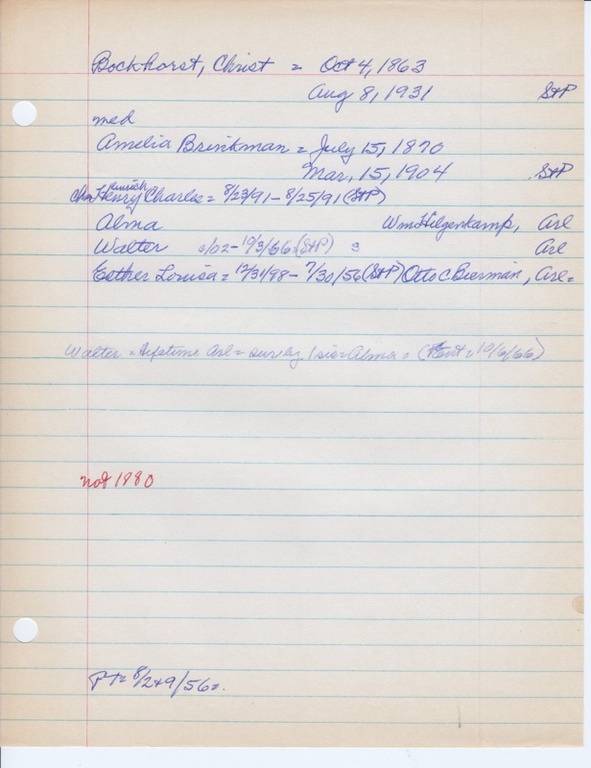 Bockhorst, Christ = Oct 4, 1863
Aug 8, 1931 StP
med
Amelia Brinkman = July 15, 1870
Mar, 15, 1904 StP
Hinrich
Henry Charles = 8/23/91 - 8/25/91 (StP)
Alma Wm Hilgenkamp, Arl
Walter /02 - 10/3/66 (StP) Arl
Esther Louisa = 12/31/98 - 7/30/56 (StP) Otto C Bierman, Arl =
Walter = lifetime Arl = surv by 1 sis = Alma = ( 10/6/66)
not 1880
PT = 8/2+9/56 =.